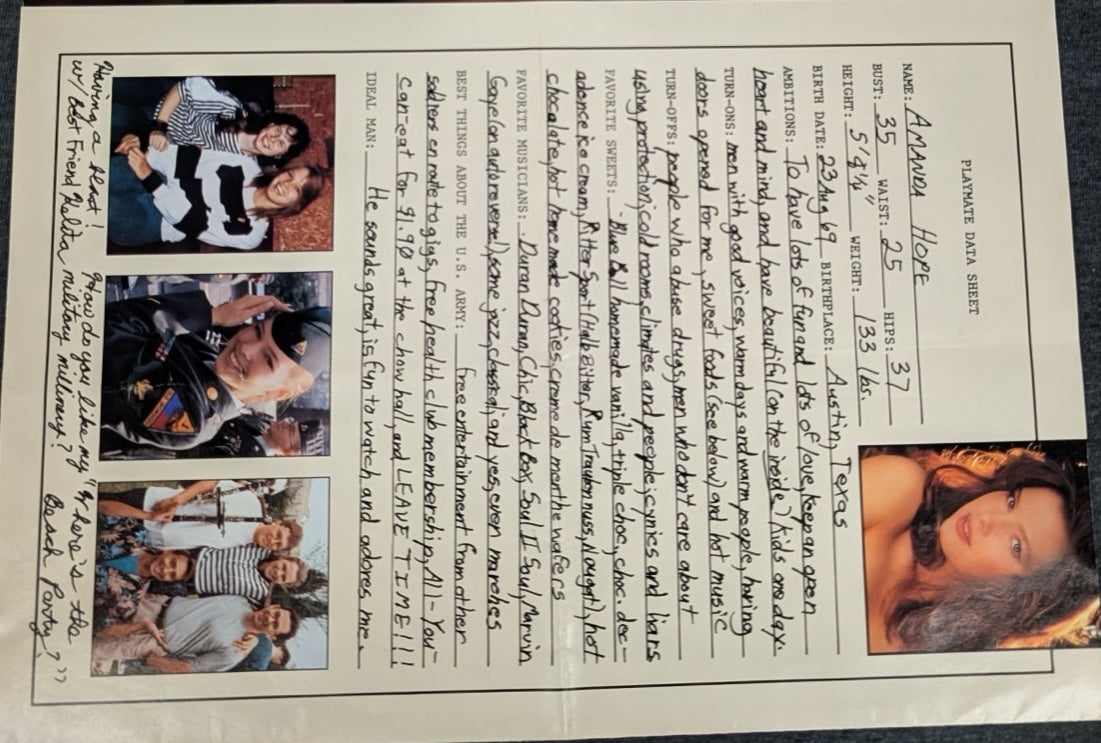 PLAYMATE DATA SHEET
NAME: AMANDA HOPE
BUST: 35 WAIST: 25 HIPS: 37
HEIGHT: 5'9½" WEIGHT: 133 lbs.
BIRTH DATE: 23 Aug 69 BIRTHPLACE: Austin, Texas
AMBITIONS: To have lots of fun and lots of love, keep an open
heart and mind, and have beautiful (on the inside) kids one day.
TURN-ONS: men with good voices, warm days and warm people, having
doors opened for me, sweet foods (see below) and hot music
TURN-OFFS: people who abuse drugs, men who don't care about
using protection, cold rooms, climates and people, cynics and liars
FAVORITE SWEETS: Blue Bell homemade vanilla, triple choc, choc. dec-
adence ice cream, Ritter Sport (Halb Bitter, Rum Trauben nuss, Nougat), hot
chocolate, hot homemade cookies, creme de menthe wafers
FAVORITE MUSICIANS: Duran Duran, Chic, Black Box, Soul II Soul, Marvin
Gaye (on auto reverse!), some jazz, classical, and yes, even marches
BEST THINGS ABOUT THE U.S. ARMY: free entertainment from other
soldiers en route to gigs, free health club membership, All-You-
can-eat for $1.90 at the chow hall, and LEAVE TIME!!!
IDEAL MAN: He sounds great, is fun to watch and adores me.
Having a blast!
w/ Best Friend Kelita
How do you like my
military millinery?
"Where's the
Beach Party?"